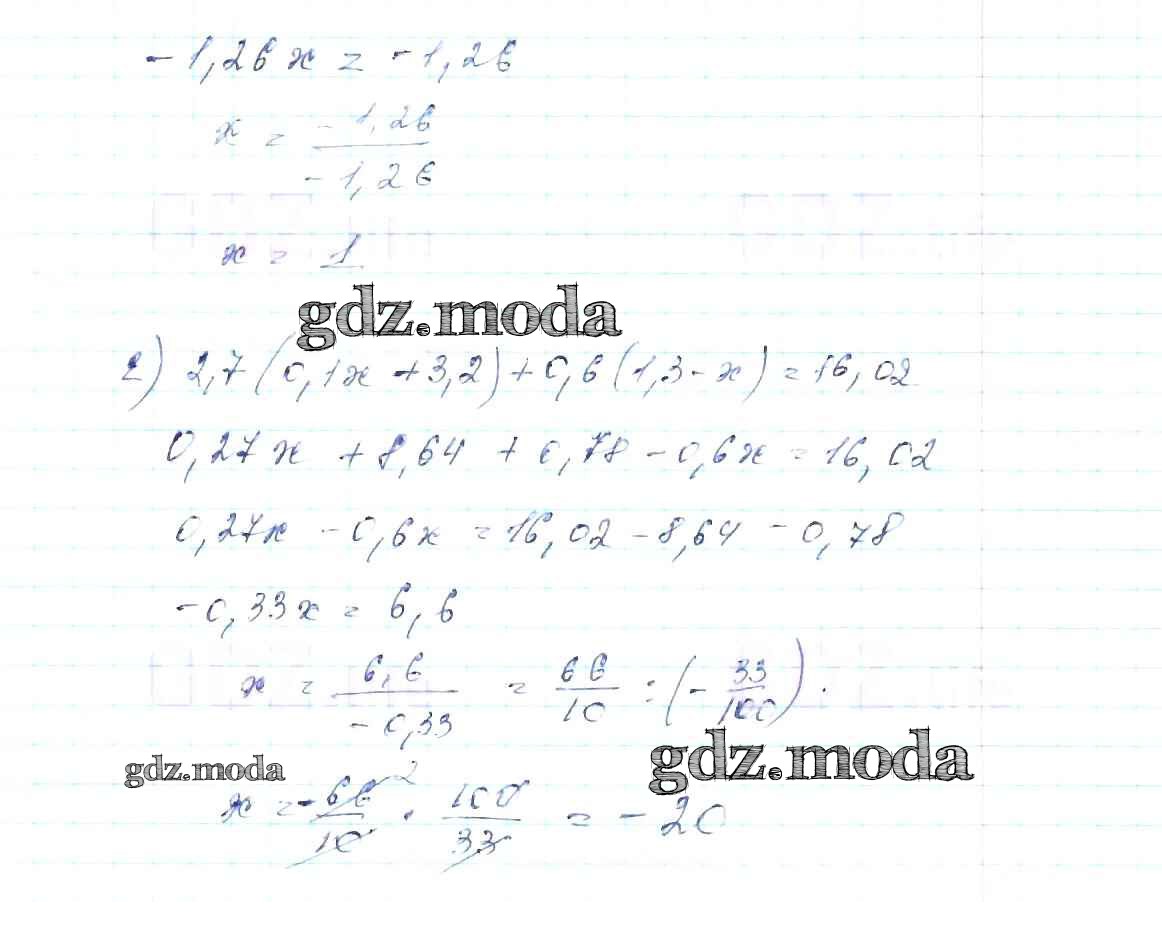 -1,26x = -1,26
x = -1,26 / -1,26
x = 1
gdz.moda
2) 2,7(0,1x + 3,2) + 0,6(1,3 - x) = 16,02
0,27x + 8,64 + 0,78 - 0,6x = 16,02
0,27x - 0,6x = 16,02 - 8,64 - 0,78
-0,33x = 6,6
x = 6,6 / -0,33 = 66/10 : (- 33/100).
gdz.moda
gdz.moda
x = - 66/10 2 · 100/33 = - 20